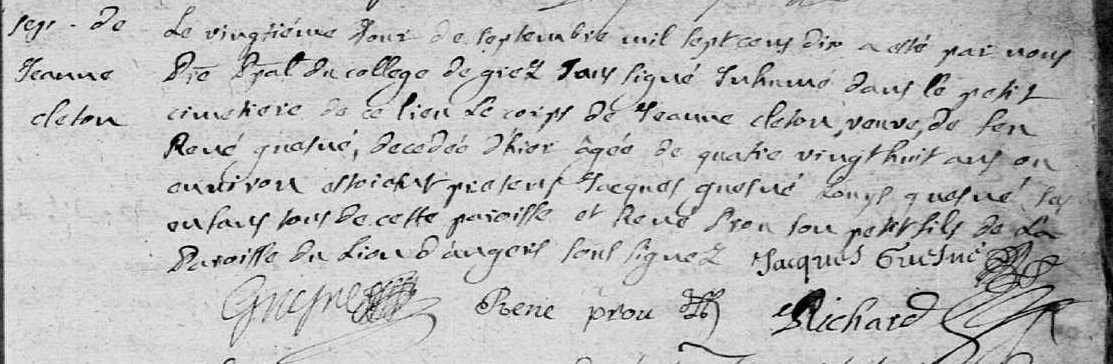 sep. de
Jeanne
cleton
Le vingtiéme Jour de septembre mil sept cens dix a esté par nous
Ptre Ppal du college de grez sous signé Inhumé dans le petit
cimetiere de ce lieu Le corps de Jeanne cleton, veuve, de feu
René quesné, decedée d'hier âgée de quatre vingt huit ans ou
environ estoient presens Jacques quesné Louys quesné ses
enfans tous de cette paroisse et René Prou son petit fils de La
Paroisse du Lion d'angers sous signez Jacques Guesné
Guesne René prou Richard